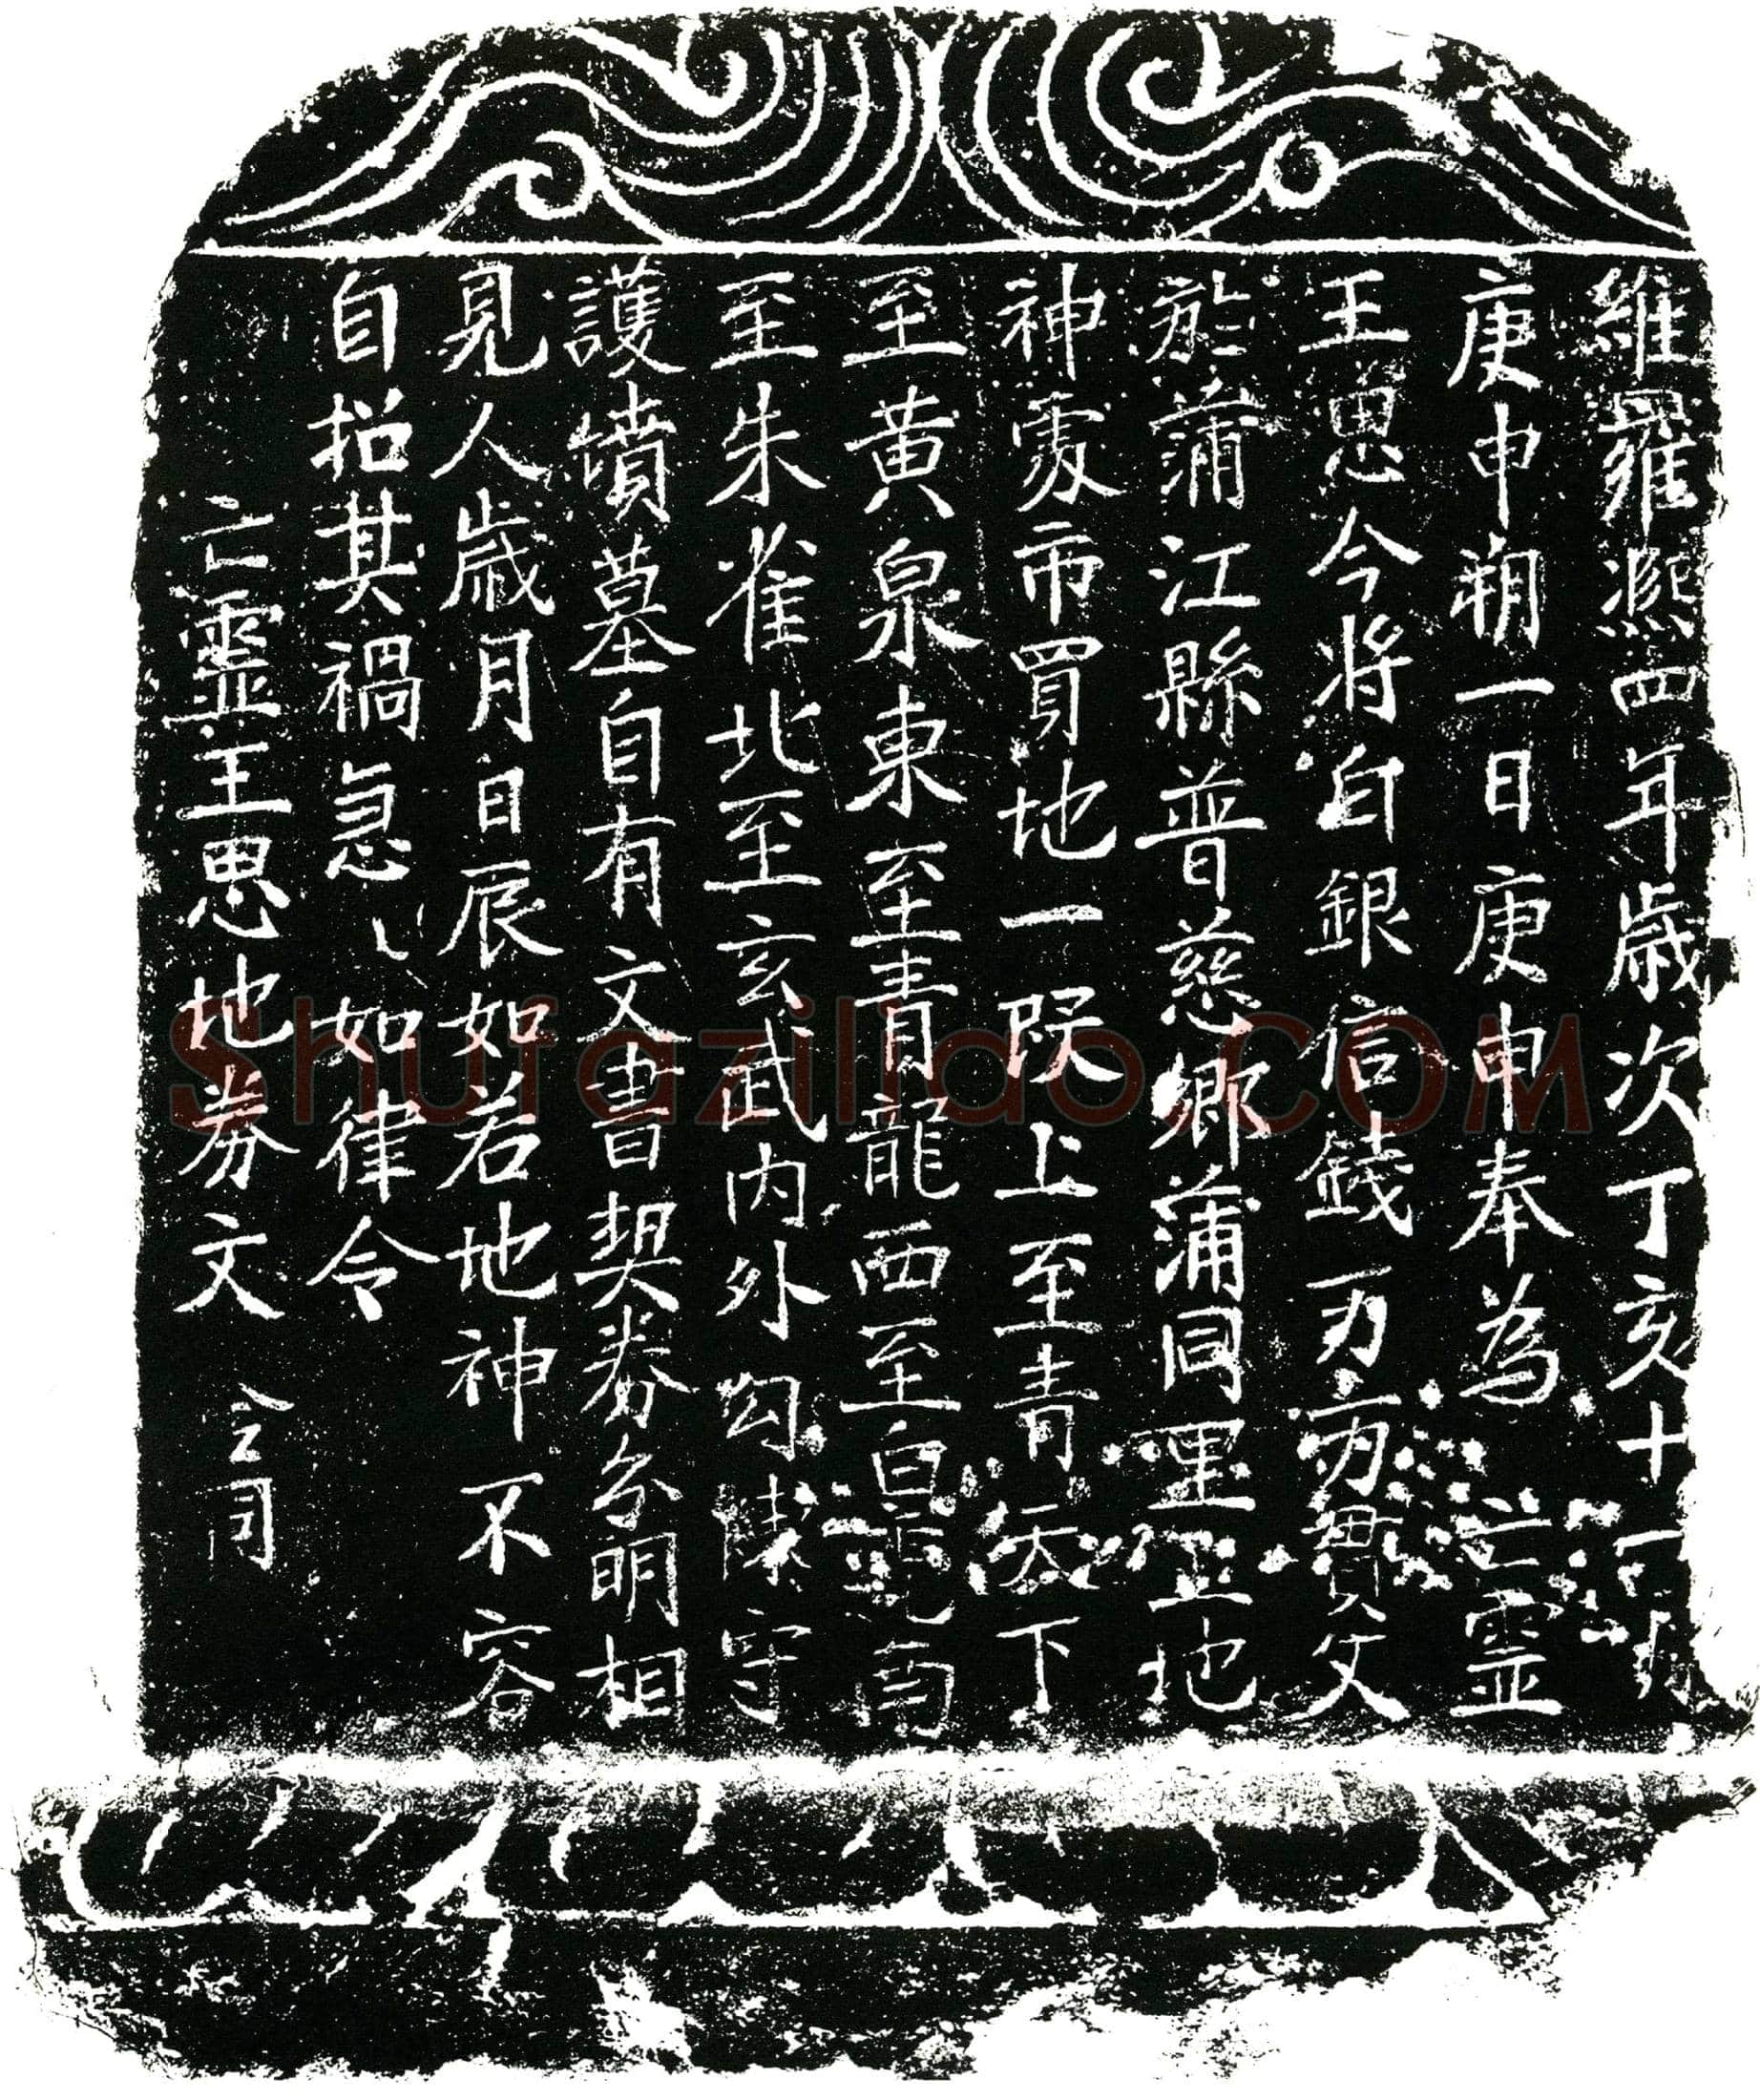 維羅雍熙四年歲次丁亥十一月
庚申朔一日庚申奉為亡靈
王思今將白銀信錢万万貫文
於蒲江縣普慈鄉蒲同里土地
神處市買地一段上至青天下
至黃泉東至青龍西至白虎南
至朱雀北至玄武內外勾陳守
護墳墓自有文書契券分明相
見人歲月日辰如若地神不容
自招其禍急〻如律令
亡靈王思地券文
Shufaziliao.COM